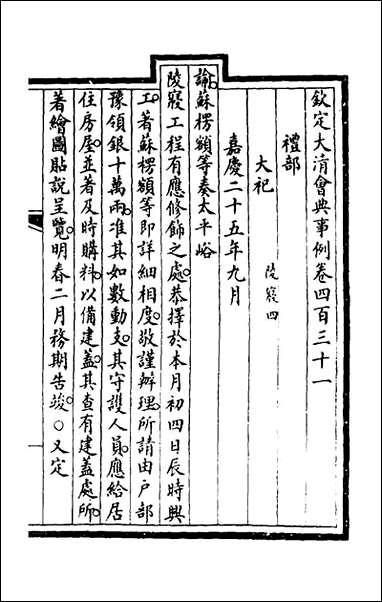 欽定大清會典事例卷四百三十一
禮部
大祀 陵寢四
嘉慶二十五年九月
諭蘇楞額等奏太平峪
陵寢工程有應修飾之處。恭擇於本月初四日辰時興
工。著蘇楞額等即詳細相度。敬謹辦理。所請由戶部
豫領銀十萬兩。准其如數動支。其守護人員。應給居
住房屋。並著及時購料。以備建蓋。其查有建蓋處所。
著繪圖貼說呈覽。明春二月務期告竣。○又定